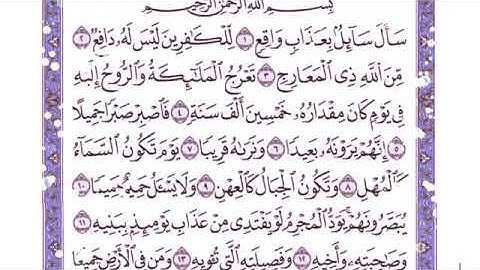 بِسْمِ ٱللَّهِ ٱلرَّحْمَٰنِ ٱلرَّحِيمِ
سَأَلَ سَآئِلٌۢ بِعَذَابٍ وَاقِعٍ ١ لِّلْكَٰفِرِينَ لَيْسَ لَهُۥ دَافِعٌ ٢
مِّنَ ٱللَّهِ ذِى ٱلْمَعَارِجِ ٣ تَعْرُجُ ٱلْمَلَٰٓئِكَةُ وَٱلرُّوحُ إِلَيْهِ
فِى يَوْمٍ كَانَ مِقْدَارُهُۥ خَمْسِينَ أَلْفَ سَنَةٍ ٤ فَٱصْبِرْ صَبْرًا جَمِيلًا
٥ إِنَّهُمْ يَرَوْنَهُۥ بَعِيدًا ٦ وَنَرَىٰهُ قَرِيبًا ٧ يَوْمَ تَكُونُ ٱلسَّمَآءُ
كَٱلْمُهْلِ ٨ وَتَكُونُ ٱلْجِبَالُ كَٱلْعِهْنِ ٩ وَلَا يَسْـَٔلُ حَمِيمٌ حَمِيمًا ١٠
يُبَصَّرُونَهُمْ ۚ يَوَدُّ ٱلْمُجْرِمُ لَوْ يَفْتَدِى مِنْ عَذَابِ يَوْمِئِذٍۭ بِبَنِيهِ ١١
وَصَٰحِبَتِهِۦ وَأَخِيهِ ١٢ وَفَصِيلَتِهِ ٱلَّتِى تُـْٔوِيهِ ١٣ وَمَن فِى ٱلْأَرْضِ جَمِيعًا